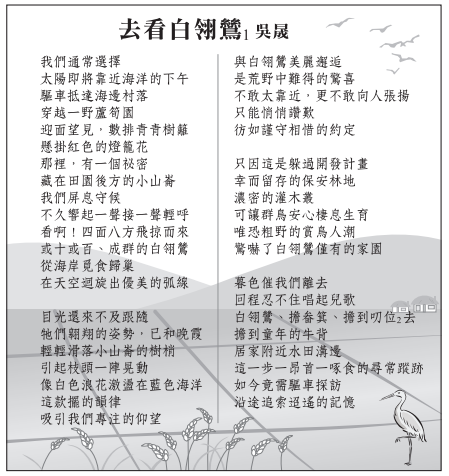 去看白翎鷥1 吳晟
我們通常選擇
太陽即將靠近海洋的下午
驅車抵達海邊村落
穿越一野蘆筍園
迎面望見，數排青青樹籬
懸掛紅色的燈籠花
那裡，有一個祕密
藏在田園後方的小山崙
我們屏息守候
不久響起一聲接一聲輕呼
看啊！四面八方飛掠而來
或十或百、成群的白翎鷥
從海岸覓食歸巢
在天空迴旋出優美的弧線
目光還來不及跟隨
牠們翱翔的姿勢，已和晚霞
輕輕滑落小山崙的樹梢
引起枝頭一陣晃動
像白色浪花激盪在藍色海洋
這款擺的韻律
吸引我們專注的仰望
與白翎鷥美麗邂逅
是荒野中難得的驚喜
不敢太靠近，更不敢向人張揚
只能悄悄讚歎
彷如謹守相惜的約定
只因這是躲過開發計畫
幸而留存的保安林地
濃密的灌木叢
可讓群鳥安心棲息生育
唯恐粗野的賞鳥人潮
驚嚇了白翎鷥僅有的家園
暮色催我們離去
回程忍不住唱起兒歌
白翎鷥、擔畚箕、擔到叨位2去
擔到童年的牛背
居家附近水田溝邊
這一步一昂首一啄食的尋常蹤跡
如今竟需驅車探訪
沿途追索迢遙的記憶